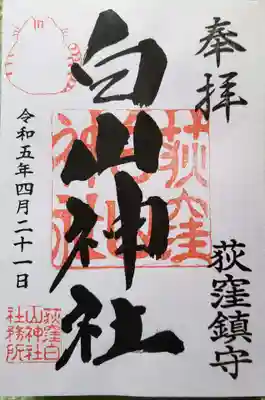 奉拝
荻窪鎮守
白山神社
荻窪
白山
神社
令和五年四月二十一日
荻窪白
山神社
社務所